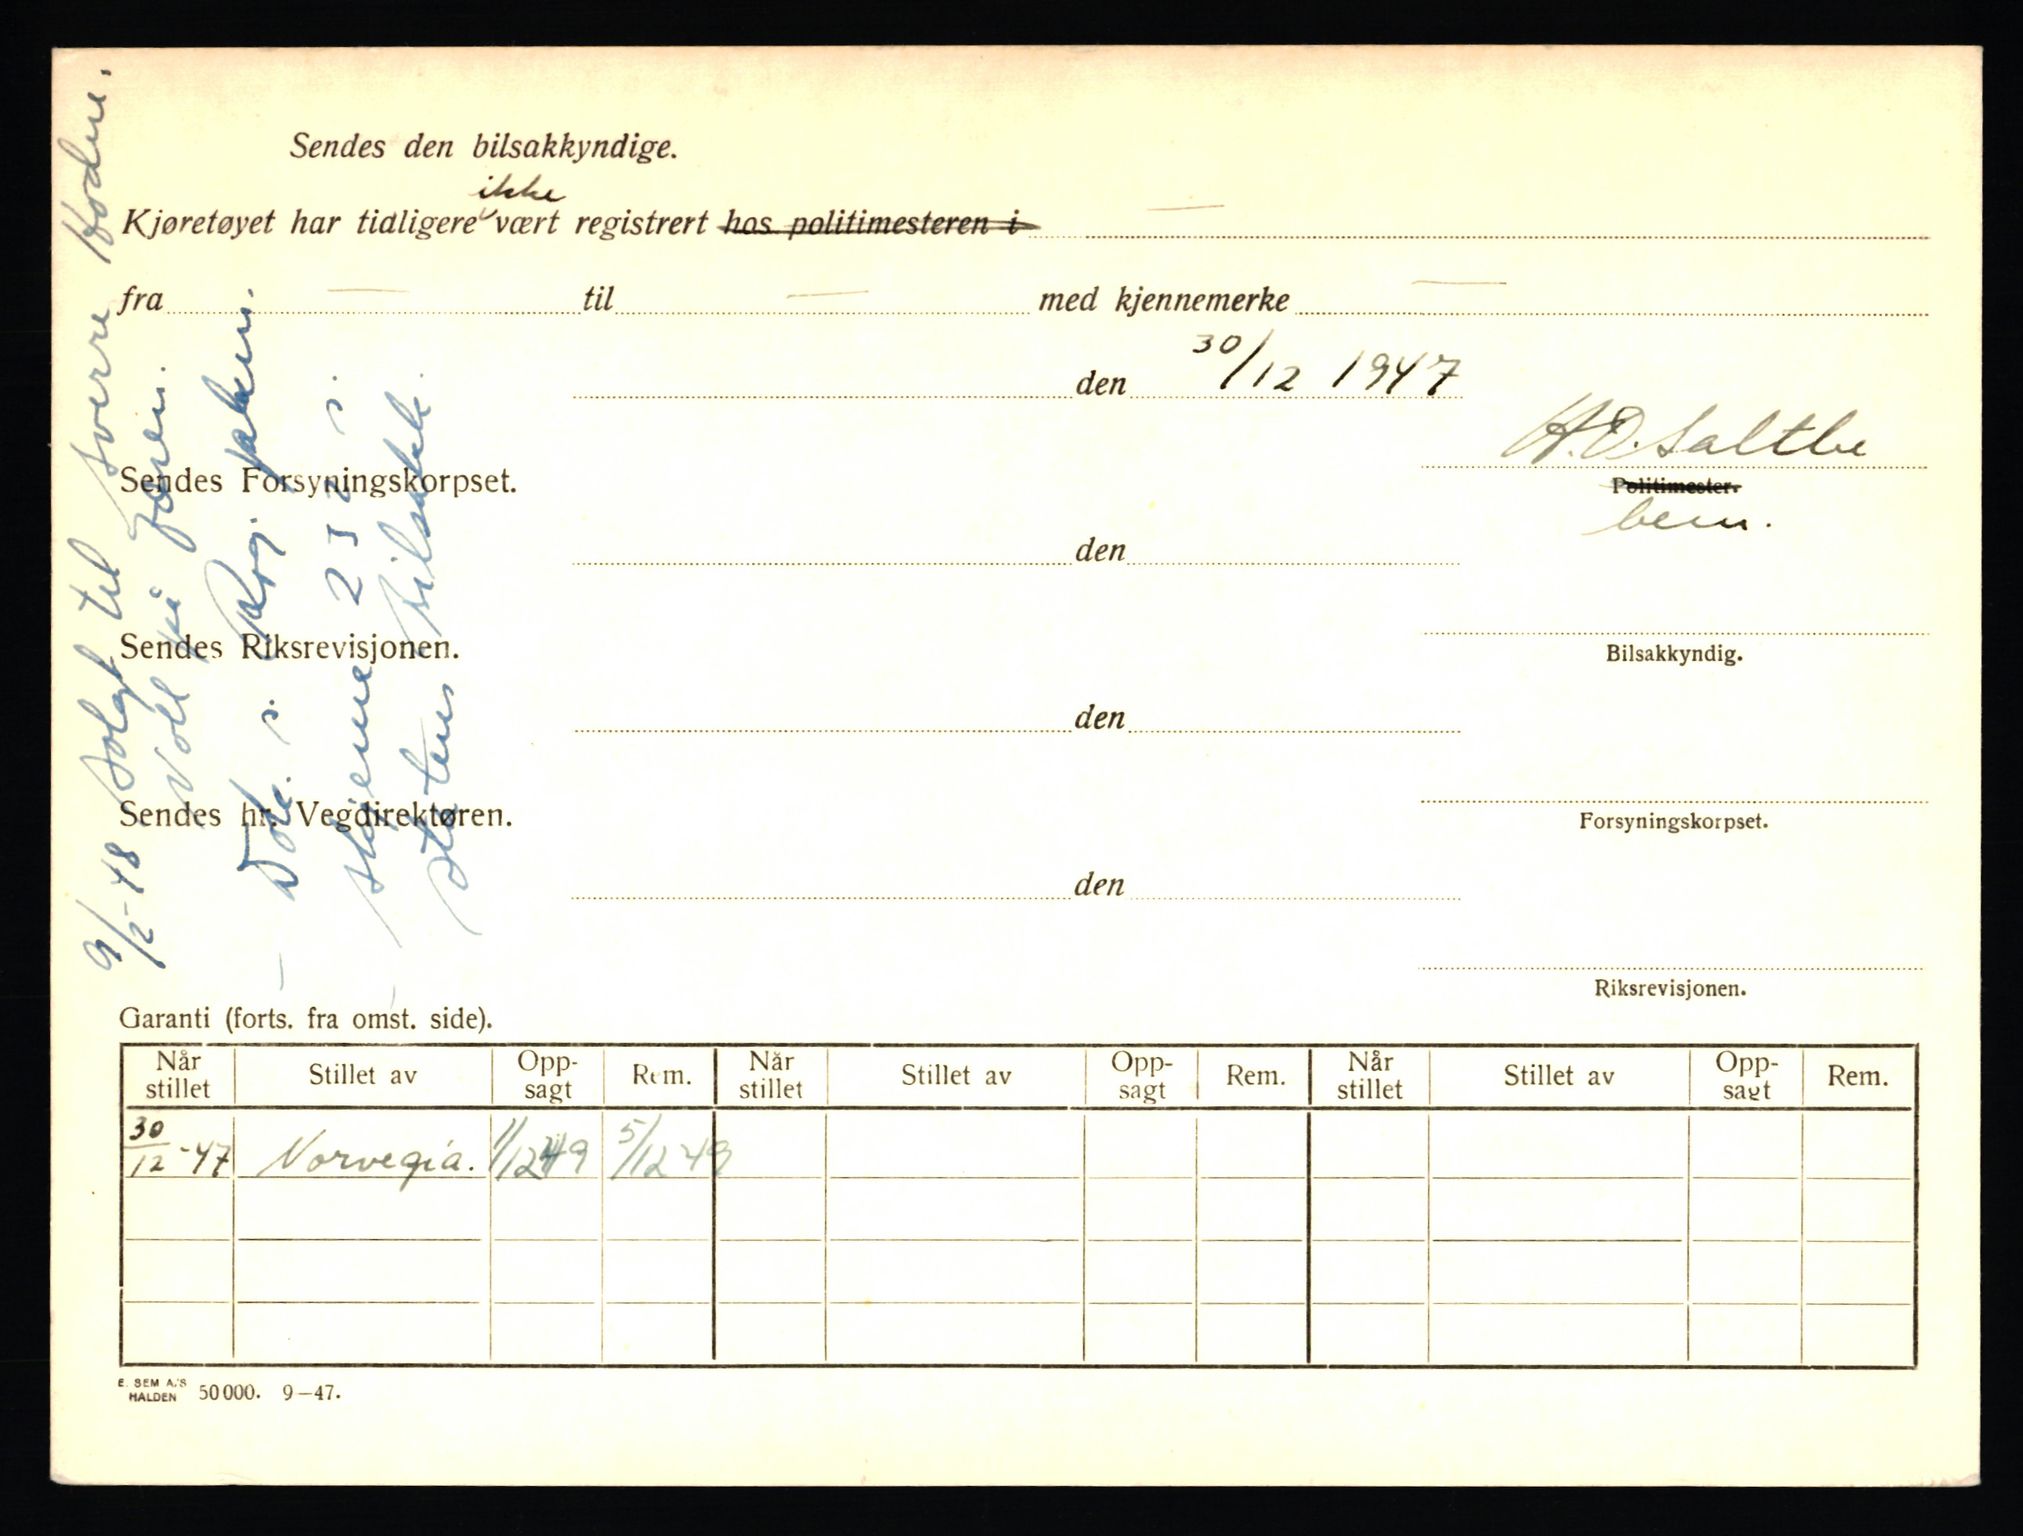 Sendes den bilsakkyndige.
ikke
Kjøretøyet har tidligere vært registrert hos politimesteren i
fra til med kjennemerke
den 30/12 1947
H. O. Saltbe
Sendes Forsyningskorpset.
Politimester.
bem.
den
Sendes Riksrevisjonen.
Bilsakkyndig.
den
Sendes hr. Vegdirektøren.
Forsyningskorpset.
den
Riksrevisjonen.
9/2-48 Solgt til Sverre Hodne.
Voll på Jæren.
2312
Statens Bilsakk.
Garanti (forts. fra omst. side).
Når stillet Stillet av Opp-sagt Rem. Når stillet Stillet av Opp-sagt Rem. Når stillet Stillet av Opp-sagt Rem.
30/12-47 Norvegia. 1/12 49 5/12 49
E. SEM A.'S HALDEN 50 000. 9—47.